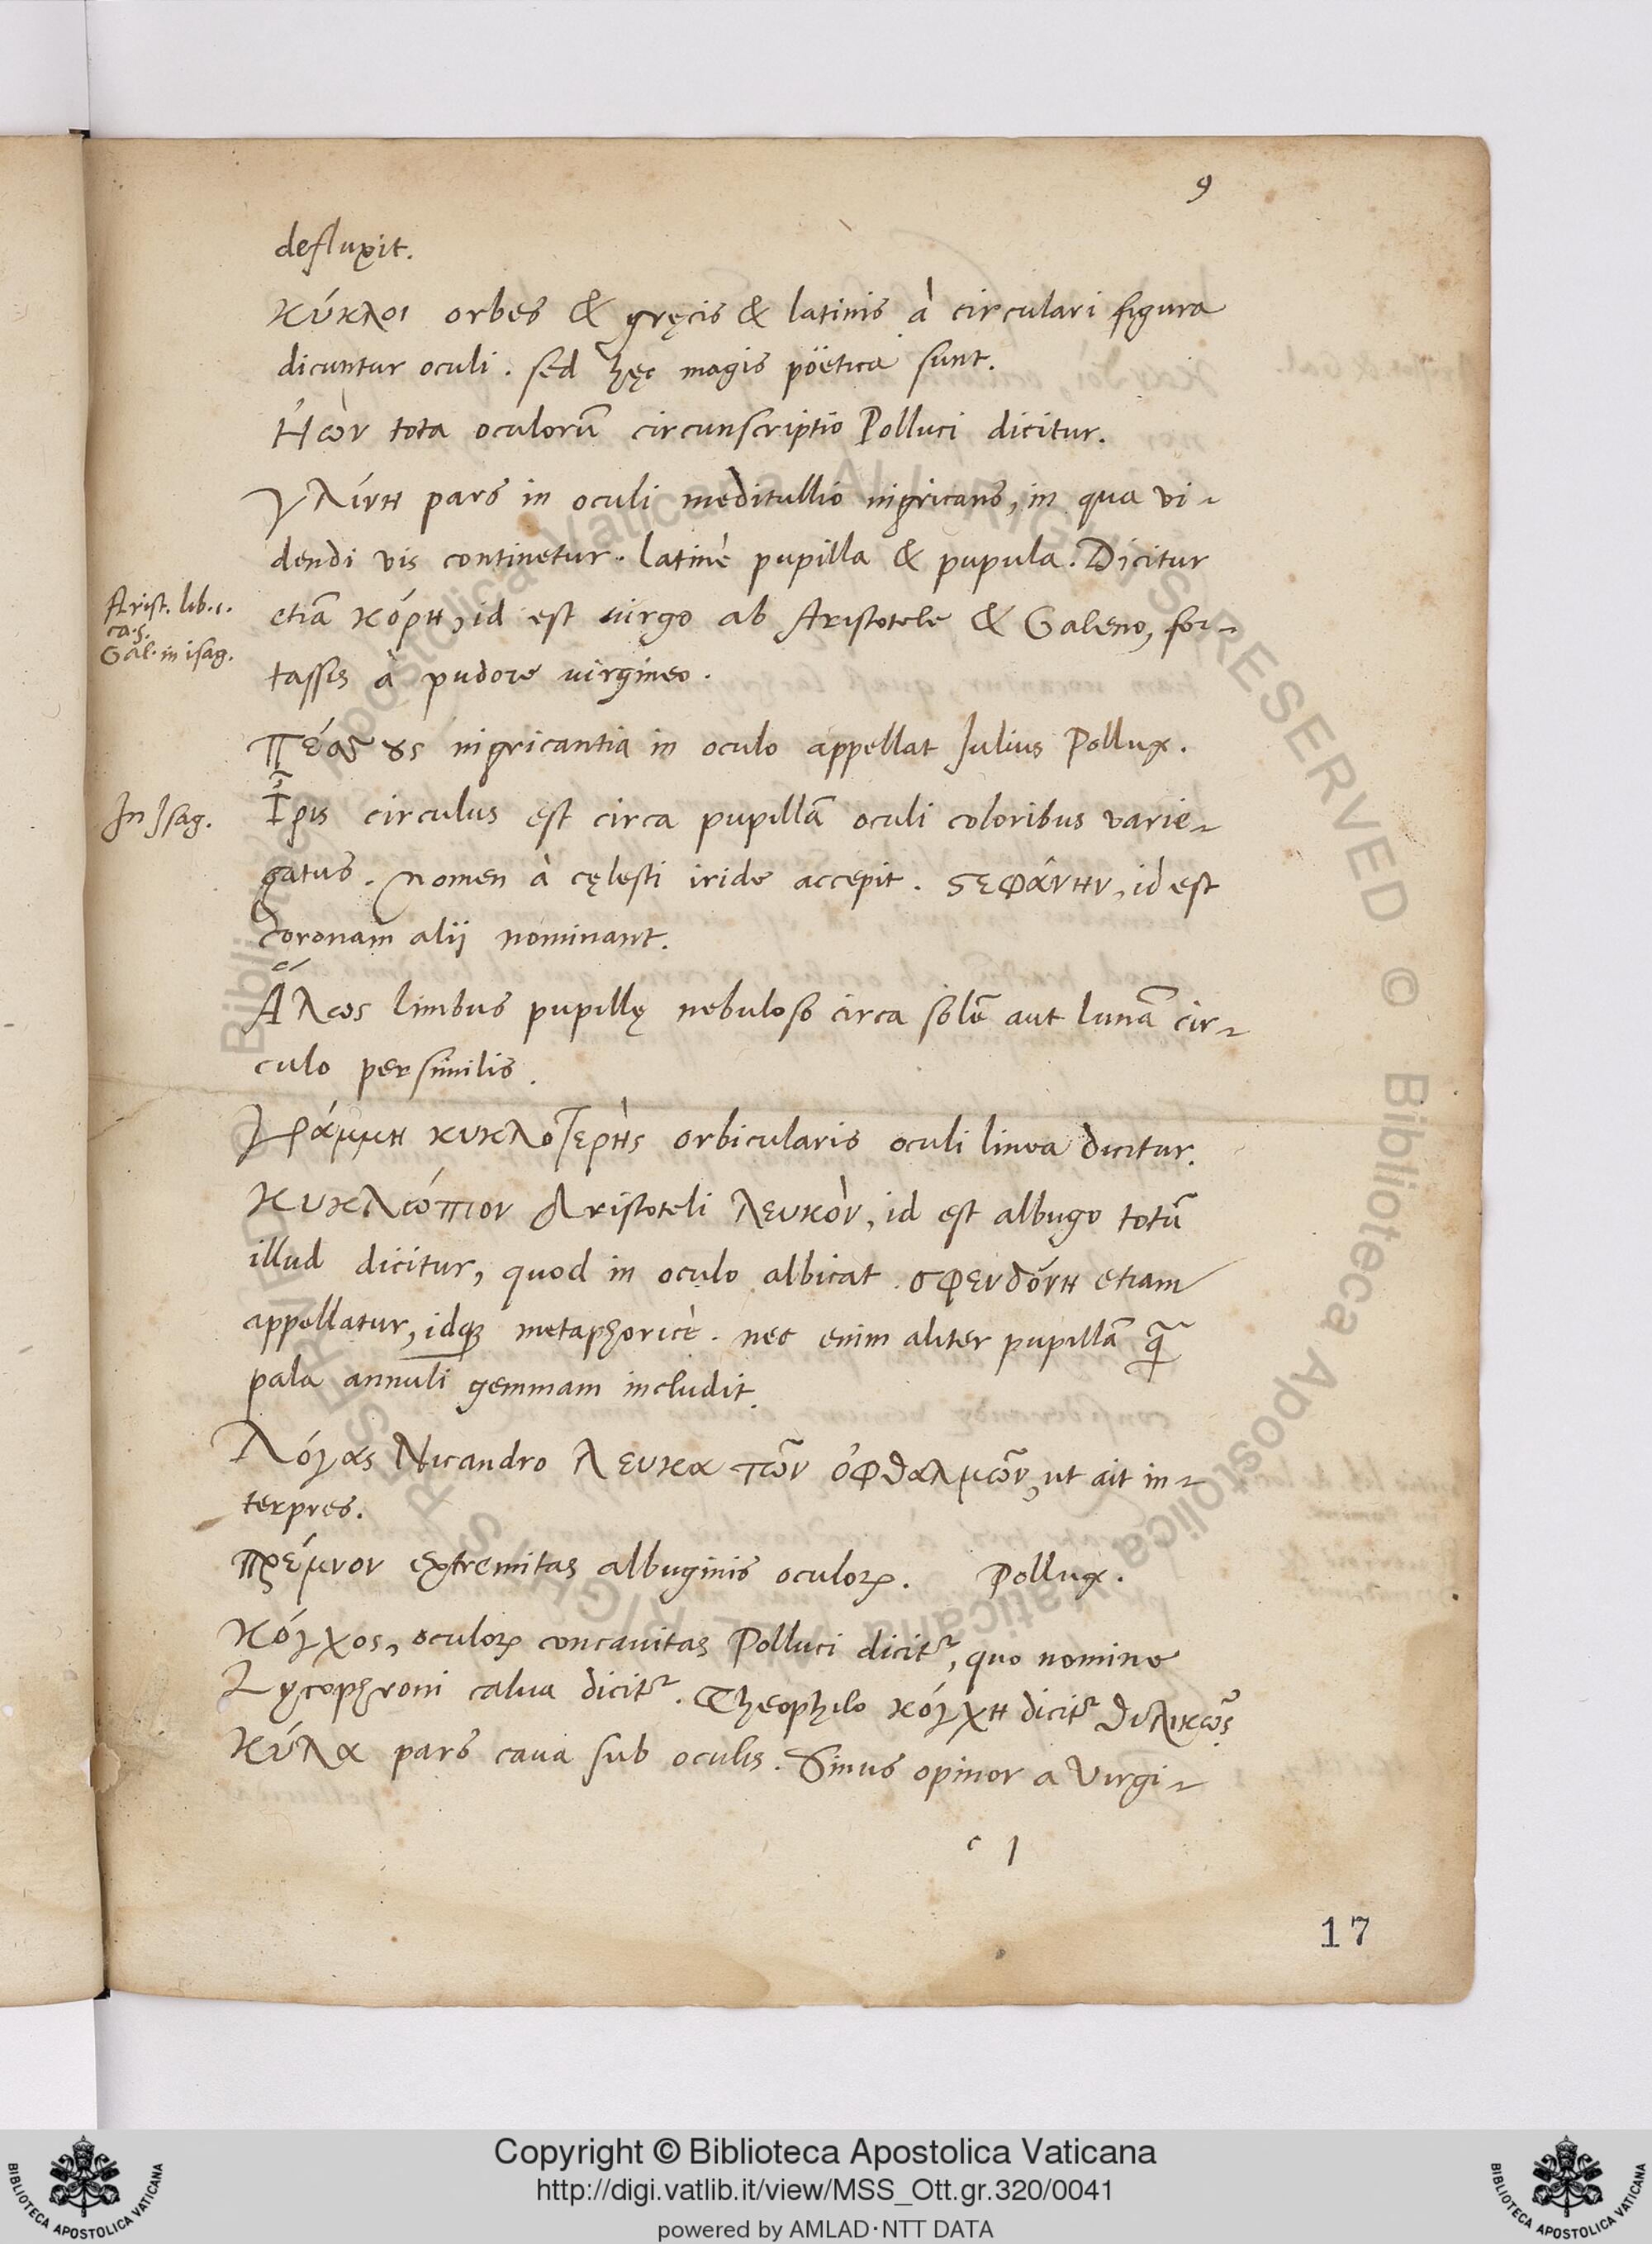 9
defluxit.
κύκλοι orbes & gręcis & latinis à circulari figura
dicuntur oculi. sed hęc magis pöetica sunt.
Ἠὼν tota oculorũ circunscriptio Polluci dicitur.
γλίνη pars in oculi meditullio nigricans, in qua vi-
dendi vis continetur. latinè pupilla & pupula. Dicitur
Arist. lib. 1.
ca. 5.
Gal. in isag.
etiã κόρη, id est uirgo ab Aristotele & Galeno, for-
tassis à pudore uirgineo.
nigricantia in oculo appellat Julius Pollux.
In Isag.
Ἶρις circulus est circa pupillã oculi coloribus varie-
gatus. Nomen à cęlesti iride accepit. ϛεφάνην, id est
coronam alij nominant.
Ἅλως limbus pupillę nebuloso circa solẽ aut lunã cir-
culo persimilis.
γράμμη κυκλοτερὴς orbicularis oculi linea dicitur.
κυκλώπιον Aristoteli λευκὸν, id est albugo totũ
illud dicitur, quod in oculo albicat. σφενδόνη etiam
appellatur, idq; metaphoricè. nec enim aliter pupillã q̃
pala annuli gemmam includit.
Λόγας Nicandro λευκα τῶν ὀφθαλμῶν, ut ait in-
terpres.
πρέμνον extremitas albuginis oculoꝝ. Pollux.
Κόγχος, oculoꝝ concauitas Polluci dicitr, quo nomine
Lycophroni calua dicitr. Theophilo κόγχη dicitr θυλικῶς
Κύλα pars caua sub oculis. Sinus opinor a Virgi-
c 1
17
Copyright © Biblioteca Apostolica Vaticana
http://digi.vatlib.it/view/MSS_Ott.gr.320/0041
powered by AMLAD·NTT DATA
BIBLIOTECA APOSTOLICA VATICANA
BIBLIOTECA APOSTOLICA VATICANA